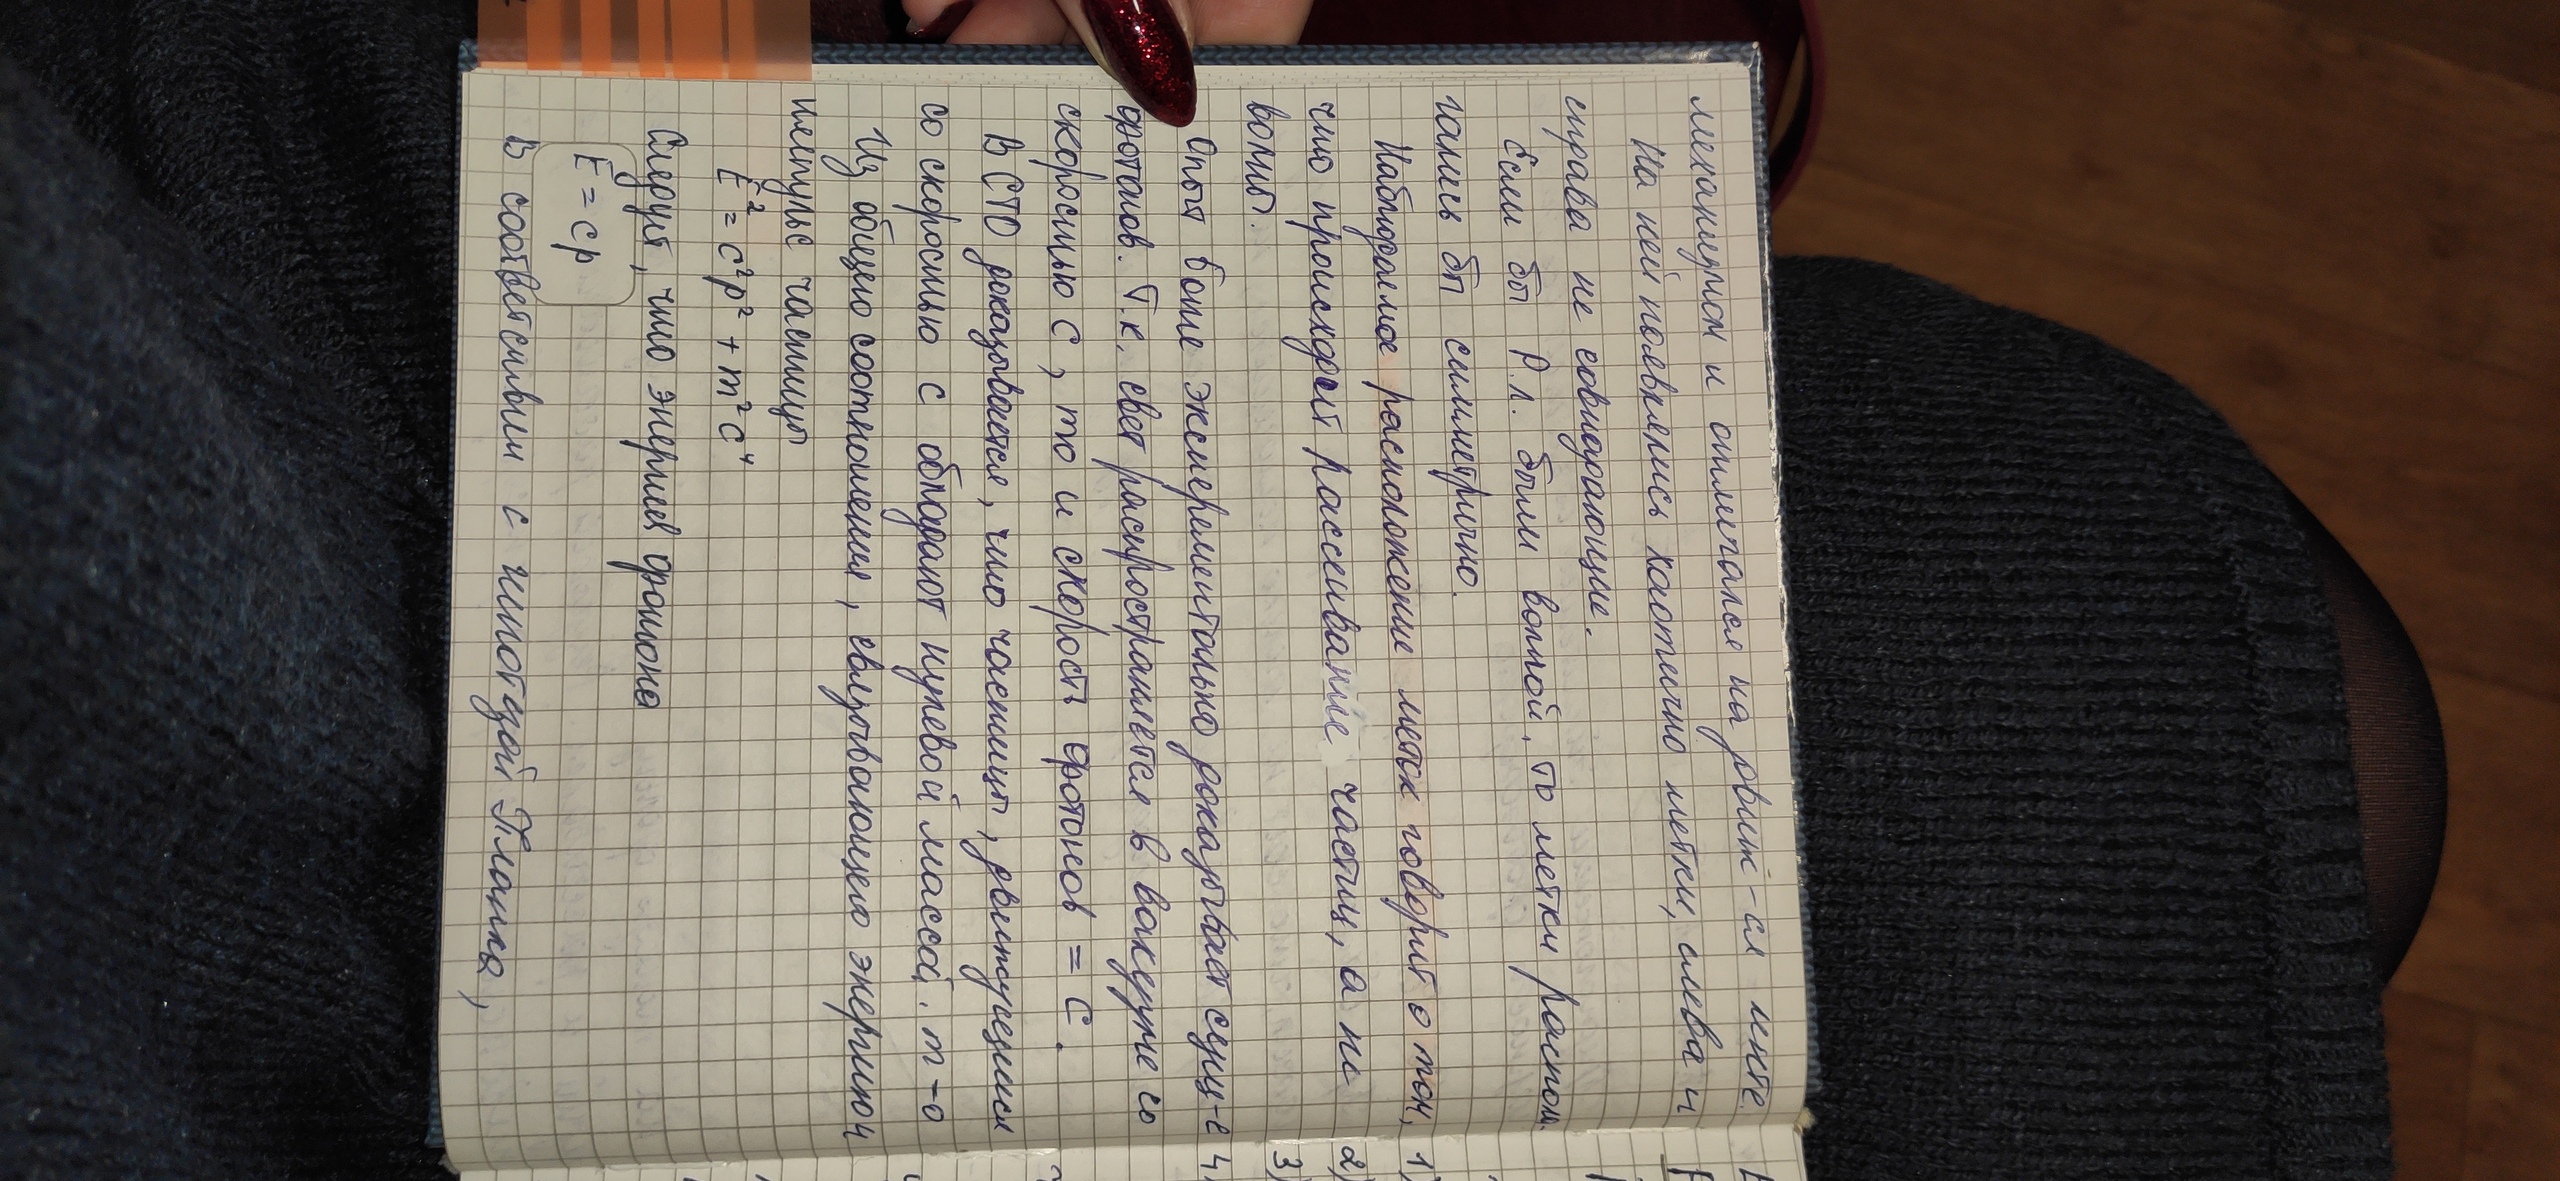 механизмом и отмечался на движ-ся ленте.
На ней появлялись хаотично метки, слева и
справа не совпадающие.
Если бы Р.л. были волной, то метки распола-
гались бы симметрично.
Наблюдаемое расположение меток говорит о том,
что происходит рассеивание частиц, а не
волны.
Опыт Боте эксперементально доказывает сущ-е
фотонов. Т.к. свет распространяется в вакууме со
скоростью c, то и скорость фотонов = c.
В СТО доказывается, что частицы, движущиеся
со скоростью c обладают нулевой массой. m-0
Из общего соотношения, связывающего энергию и
импульс частицы
E² = c²p² + m²c⁴
Следует, что энергия фотона
E = cp
В соответствии с гипотезой Планка,
1)
2)
3)
4